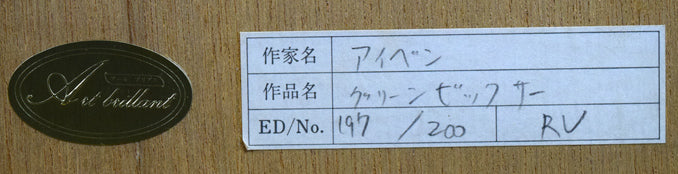 Art brillant
作家名 アイベン
作品名 グリーンビックサー
ED/No. 197/200 RV